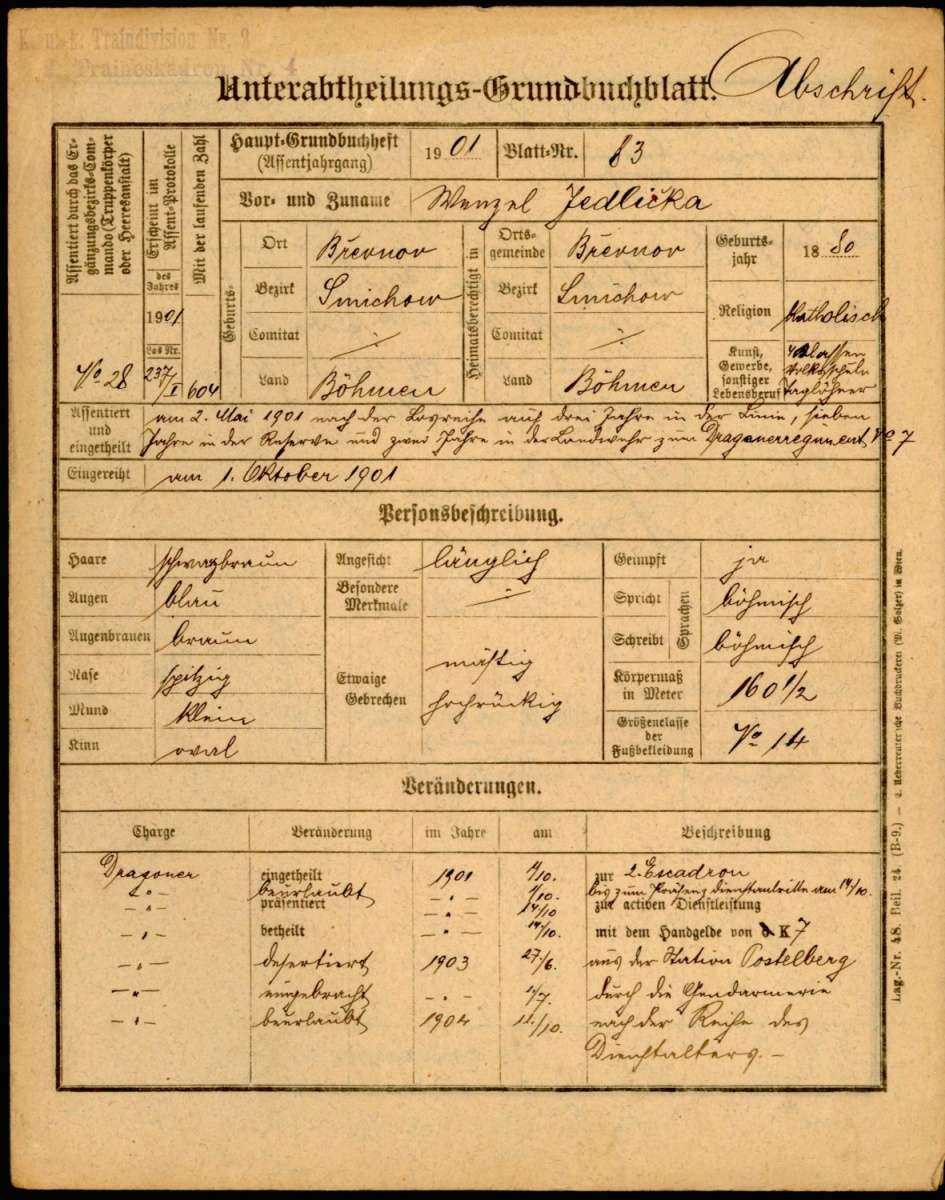 K. u. k. Traindivision Nr. 2
Traineskadron Nr. 4
Unterabtheilungs-Grundbuchblatt. Abschrift.
Assentiert durch das Ergänzungsbezirks-Commando (Truppenkörper oder Heeresanstalt)
No 28
Erscheint im Assent-Protokolle
des Jahres
1901
Los Nr.
237/I
Mit der laufenden Zahl
604
Haupt-Grundbuchheft (Assentjahrgang) 1901 Blatt-Nr. 83
Vor- und Zuname Wenzel Jedlička
Geburts-
Ort Břevnov
Bezirk Smichow
Comitat ·/·
Land Böhmen
Heimatsberechtigt in
Ortsgemeinde Břevnov
Bezirk Smichow
Comitat ·/·
Land Böhmen
Geburtsjahr 1880
Religion Katholisch
Kunst, Gewerbe, sonstiger Lebensberuf 4 Klassen Volksschule Taglöhner
Assentiert und eingetheilt am 2. Mai 1901 nach der Losreihe auf drei Jahre in der Linie, sieben
Jahre in der Reserve und zwei Jahre in der Landwehr zum Dragonerregiment No 7
Eingereiht am 1. Oktober 1901
Personsbeschreibung.
Haare schwarzbraun
Augen blau
Augenbrauen braun
Nase spitzig
Mund klein
Kinn oval
Angesicht länglich
Besondere Merkmale ·/·
Etwaige Gebrechen mäßig
hochrückig
Geimpft ja
Sprachen
Spricht böhmisch
Schreibt böhmisch
Körpermaß in Meter 160 1/2
Größenclasse der Fußbekleidung No 14
Veränderungen.
Charge Veränderung im Jahre am Beschreibung
Dragoner eingetheilt 1901 1/10. zur 2. Escadron
d° beurlaubt 1/10. bis zum Präsenzdienstantritte am 14/10.
-"- präsentiert -"- 14/10 zur activen Dienstleistung
-"- betheilt -"- 14/10. mit dem Handgelde von K 7
-"- desertiert 1903 27./6. aus der Station Postelberg
-"- eingebracht -"- 1/7. durch die Gendarmerie
-"- beurlaubt 1904 11./10. nach der Reihe des
Dienstalters. –
Lag.-Nr. 48. Beil. 24 (B-9.) — L. Ueberreuter'sche Buchdruckerei (M. Salzer) in Wien.